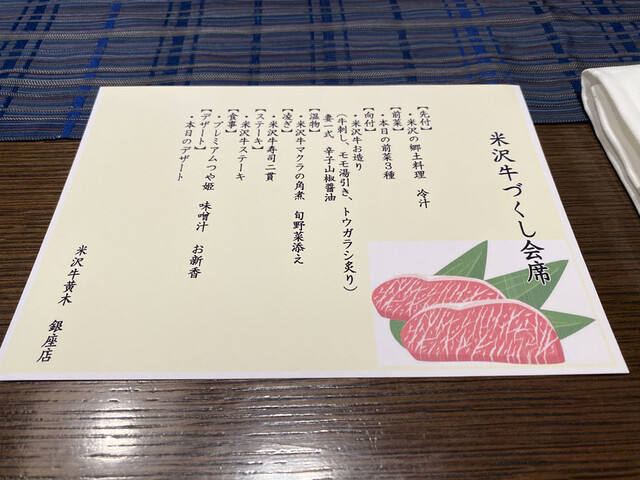 米沢牛づくし会席
【先付】
・米沢の郷土料理 冷汁
【前菜】
・本日の前菜３種
【向付】
・米沢牛お造り
（牛刺し、モモ湯引き、トウガラシ炙り）
妻一式 辛子山椒醤油
【温物】
・米沢牛マクラの角煮 旬野菜添え
【凌ぎ】
・米沢牛寿司二貫
【ステーキ】
・米沢牛ステーキ
【食事】
・プレミアムつや姫 味噌汁 お新香
【デザート】
・本日のデザート
米沢牛黄木 銀座店